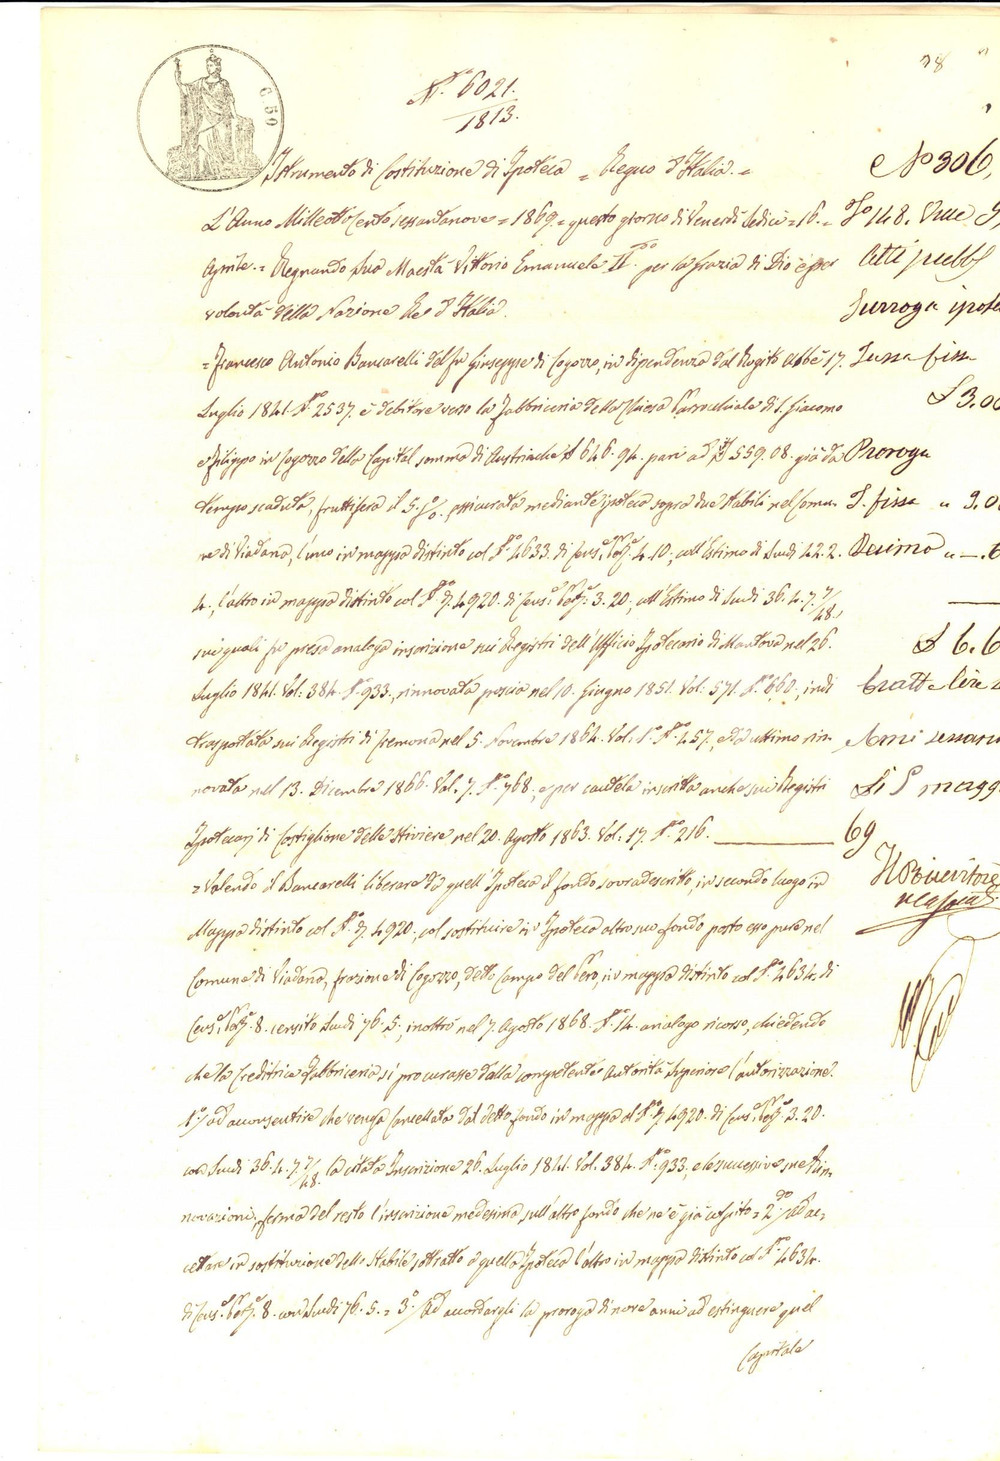 28
N.° 6021.
1813.
C. 50
Istrumento di Costituzione di Ipoteca = Regno d'Italia. =
L'Anno Mille otto Cento sessantanove = 1869 = questo giorno di Venerdì Sedici = 16. =
Aprile. = Regnando Sua Maestà Vittorio Emanuele II.do per la grazia di Dio e per
volontà della Nazione Re d'Italia.
= Francesco Antonio Bancarelli del fu Giuseppe di Cogozzo, in dipendenza del Rogito 17.
Luglio 1841. N.° 2537. è debitore verso la Fabbriceria della Chiesa Parrocchiale di S. Giacomo
e Filippo in Cogozzo della Capital somma di Austriache £ 646. 94. pari ad £ 559. 08. già da
tempo scaduta, fruttifera il 5. %. assicurata mediante ipoteca sopra due stabili nel Comu-
ne di Viadana, l'uno in mappa distinto col N.° 4633. di Cens.e Pert.e 4. 10., coll'Estimo di Scudi 42. 2.
4., l'altro in mappa distinto col N.° 4920. di Cens.e Pert.e 3. 20., coll'Estimo di Scudi 36. 4. 7. 7/48.,
sui quali fu presa analoga inscrizione sui Registri dell'Uffizio Ipotecario di Mantova nel 26.
Luglio 1841. Vol: 384. N.° 933., rinnovata poscia nel 10. Giugno 1851. Vol: 571. N.° 660., indi
trasportata sui Registri di Cremona nel 5. Novembre 1864. Vol. 1.° N.° 457., ed ultimo rin-
novata nel 13. Dicembre 1866. Vol. 7. N.° 768., e per cautela inscritta anche sui Registri
Ipotecarj di Castiglione delle Stiviere nel 20. Agosto 1863. Vol. 17. N.° 216.
= Volendo il Bancarelli liberare da quell'Ipoteca il fondo sovradescritto, in secondo luogo in
Mappa distinto col N.° 4920., col sostituire in Ipoteca altro suo fondo posto esso pure nel
Comune di Viadana, frazione di Cogozzo, detto Campo del Pero, in mappa distinto col N.° 4634. di
Cens.e Pert.e 8. censito Scudi 76. 5., inoltrò nel 7. Agosto 1868. N.° 14. analogo ricorso, chiedendo
che la Creditrice Fabbriceria si procurasse dalla competente Autorità Superiore l'autorizzazione.
1.°/ ad acconsentire che venga Cancellata dal detto fondo in mappa al N.° 4920. di Cens.e Pert.e 3. 20.
con Scudi 36. 4. 7. 7/48. la citata Inscrizione 26. Luglio 1841. Vol. 384. N.° 933., e le successive sue Rin-
novazioni, ferma del resto l'inscrizione medesima sull'altro fondo che ne è già colpito = 2.do/ ad ac-
cettare in sostituzione dello Stabile sottratto a quella Ipoteca l'altro in mappa distinto col N.° 4634.
di Cens.e Pert.e 8. con Scudi 76. 5. = 3.°/ Ad accordargli la proroga di nove anni ad estinguere quel
Capitale
N° 306,
F.° 148. Vol.
Atti pubb
Surroga ipote
Tassa fissa
£ 3.00
Proroga
T. fissa " 3.00
Decimo " —. 6
£ 6. 6
Lire
sessan
Li 5 magg
69
Il Ricevitore